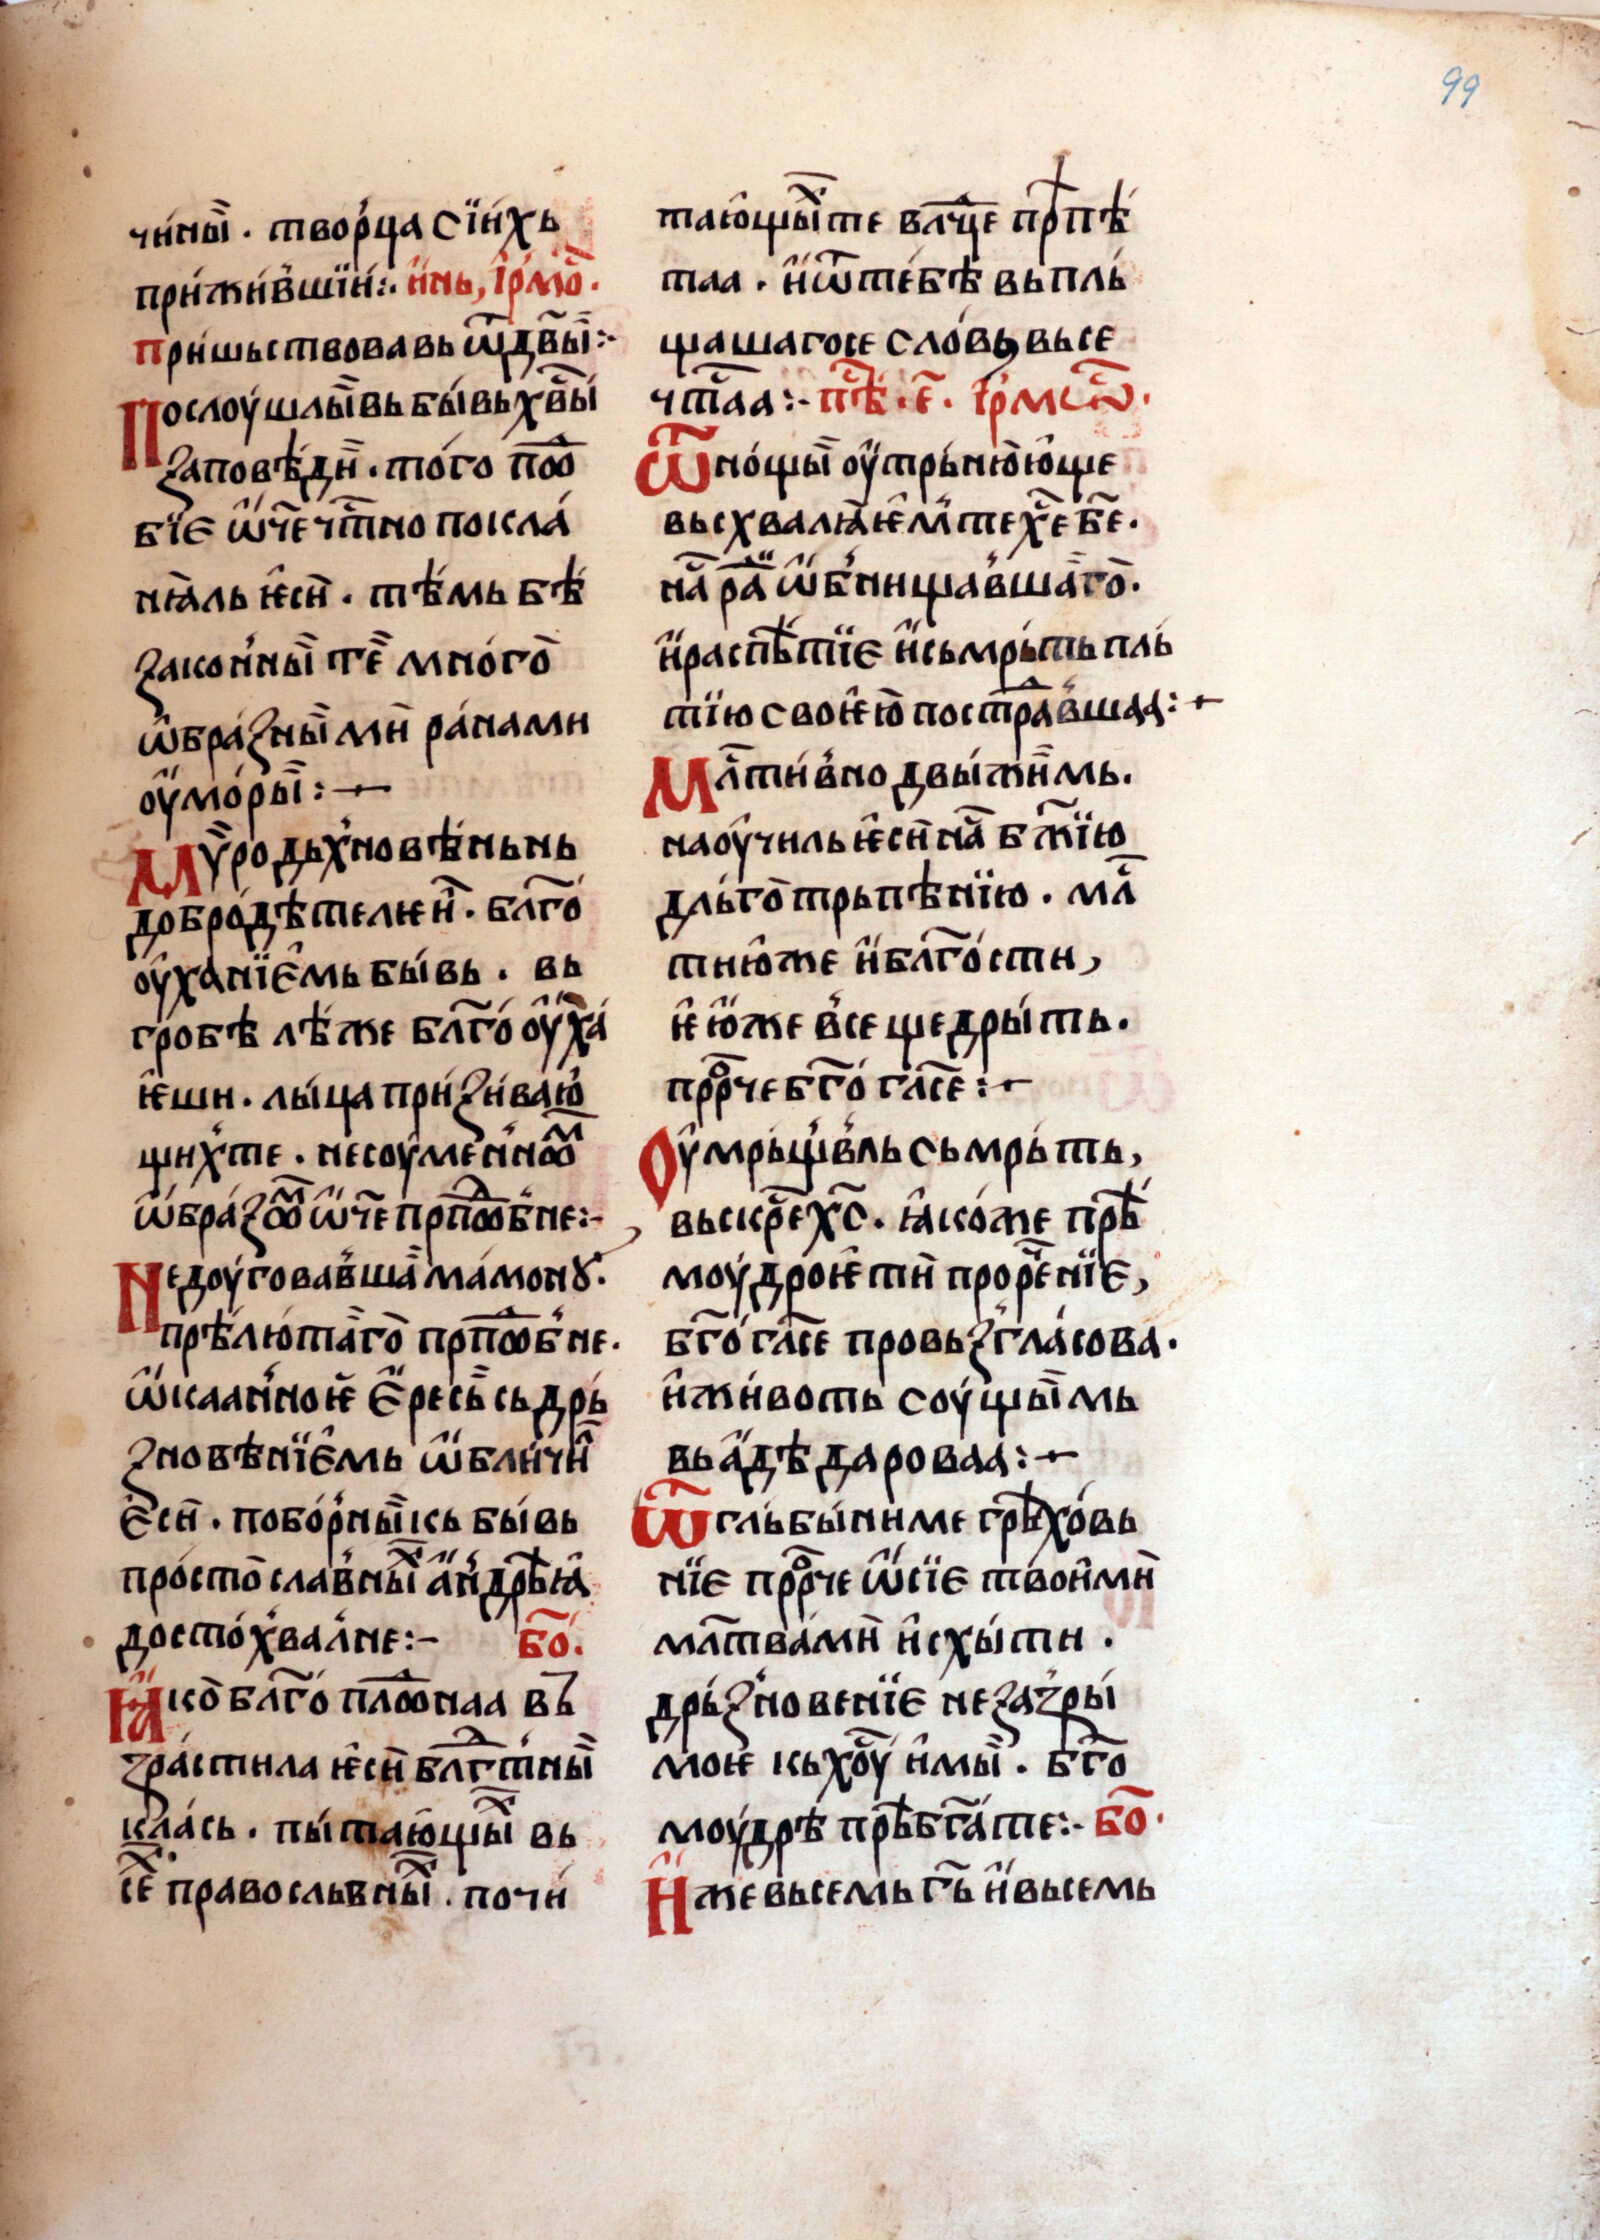 99
чи́ны̏ . творⷪ҇ца сїи́хь
при́жи́вшїи́:· и҆нь, і҆рмо̑ .
При́шьствовавь ѿдв҃ы:·
Послоу́шлы̏вь бы́вь хв҃ы
заповѣ́дн̏ . того пѡ҃
бїе ѡ҆ч҃е чт҃но покла́
нꙗ̏ль ѥ҆си̏ . тѣ́мь бѣ́
зако́нны̏ те̏ мно́го̀
ѡ҆бра́зны̏ми̏ ра́нами
оу҆мо́ры̏:~
Му̏родьхновѣ́ньнь
добродѣ́телѥи̏ . бл҃го́
оу҆ха́нїе҆мь бы́вь . вь
гробѣ лѣ́же бл҃го́ оу҆ха́
ѥ҆ши . лы́ца при́зи́ваю҆
щихте . несоуме́ннѡⷨ
ѡ҆бра́зѡⷨ ѡ҆ч҃е прпⷣѡбне:·
Недоу́говавша̏ ма́монꙋ .
прѣ́лю́та̏го̀ прпⷣѡбне .
ѡ҆каа́нноѥ е҆ресь̏ сь дрь́
зновѣ́нїе҆мь ѡ҆бли́чи̏
е҆си̏ . побо́рны̏кь бы́вь
про́сто̀славны̏ⷯ а҆ндрѣ́ꙗ҆
досто́хвалне:· бо҃ .
Ꙗ҆ко̀ бл҃го́ плⷣѡнаа вь
зра́стила ѥ҆си̏ блгⷣтны̏
кла́сь . пы́таю҆щы̏ⷯ вь
сеⷯ правосльвны̏ⷯ . почи́
таю҆щы̏ⷯте влⷣчце прⷭпѣ́
таа . и҆ ѿте́бѣ вьпль́
щашагосе сло́вꙋ вьсе
чтⷭаа:· пѣⷭ . е҃ . і҆рмсѡⷭ .
Ѿно́щы̏ оу҆трь́ню̀ю҆ще
вьсхвалꙗ̏ѥ҆мте хе҃ бе҃ .
на҃ раⷣ ѡ҆бнищавша̏го̀ .
и҆распѣⷮїе и҆сьмрь́ть пль́
тїю своѥ҆ю̀ постраⷣвшаа:~
Млⷭти́вно двы́жи̏мь .
наоу҆чиль ѥ҆си̏ на҃ бж҃їю
дль́го̀трьпѣ́нїю . млⷭ
тию҆же и҆ бл҃гости,
ѥ҆ю҆же все щедры́ть .
прⷪ҇рче бг҃о гл҃се:~
Оу҆мрь́щвль сьмрь́ть,
вьскрⷭе хс҃ . ꙗ҆ко́же прѣⷣ
моу́дроѥ ти̏ прорⷱенїе,
бг҃о гл҃се провьзгла́сова .
и҆жи́воть соу́щы̏мь
вьа҆дѣ даровaа:~
Ѿгль́бы́ниме грѣ́хо́вь
нїе прⷪ҇рче ѡ҆сїе твои҆ми̏
мл҃тва́ми̏ и҆схы́ти .
дрь́зновенїе незазры́
моѥ кь хо҃у и҆мы̏ . бг҃о
моу́дрѣ прѣⷣбга́те:· бо҃ .
И҆же вьсемь гь҃ и҆ вьсемь